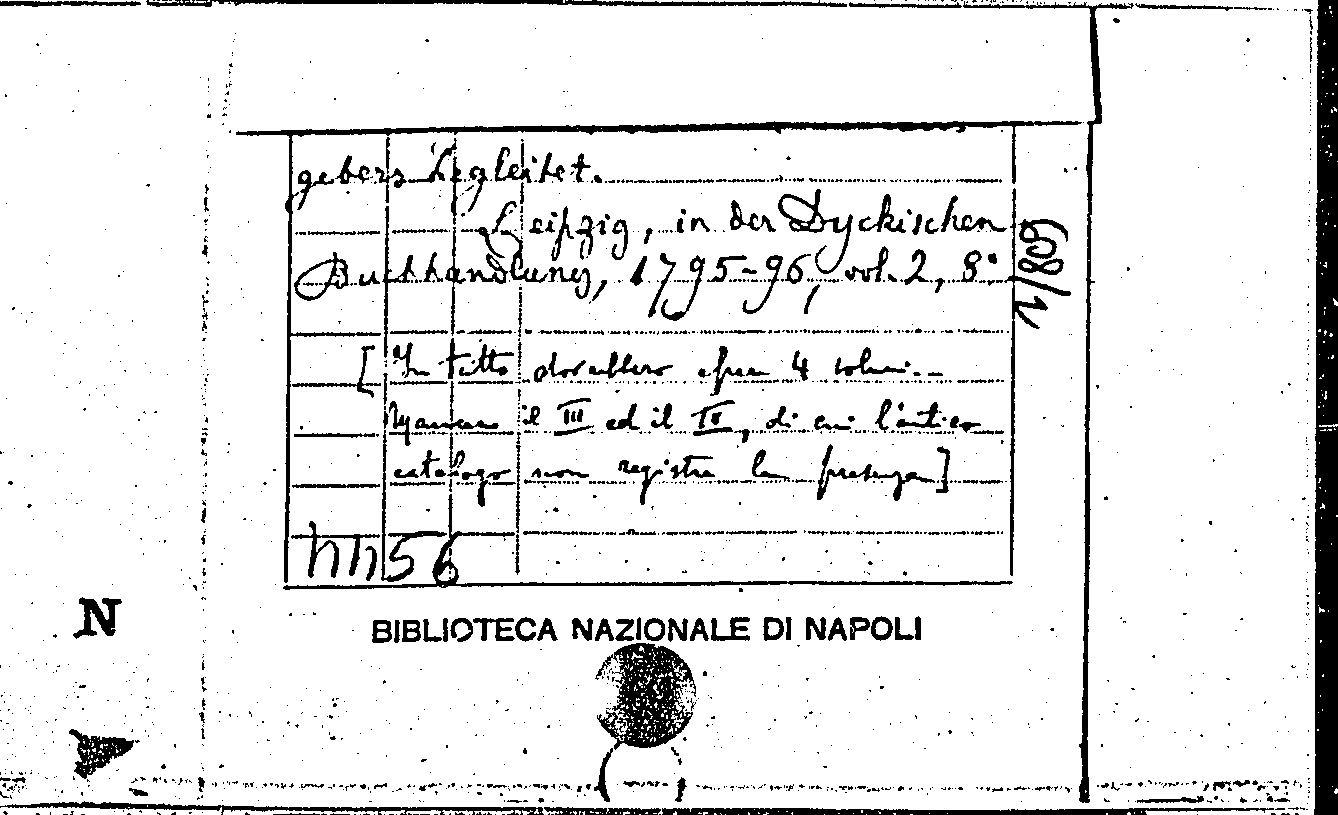 gebers begleitet.
Leipzig, in der Dyckischen
Buchhandlung, 1795-96, vol. 2, 8°.
608/1
[In tutto dovrebbero essere 4 volumi.
Mancano il III ed il IV, di cui l'antico
catalogo non registra la presenza]
56
N
BIBLIOTECA NAZIONALE DI NAPOLI